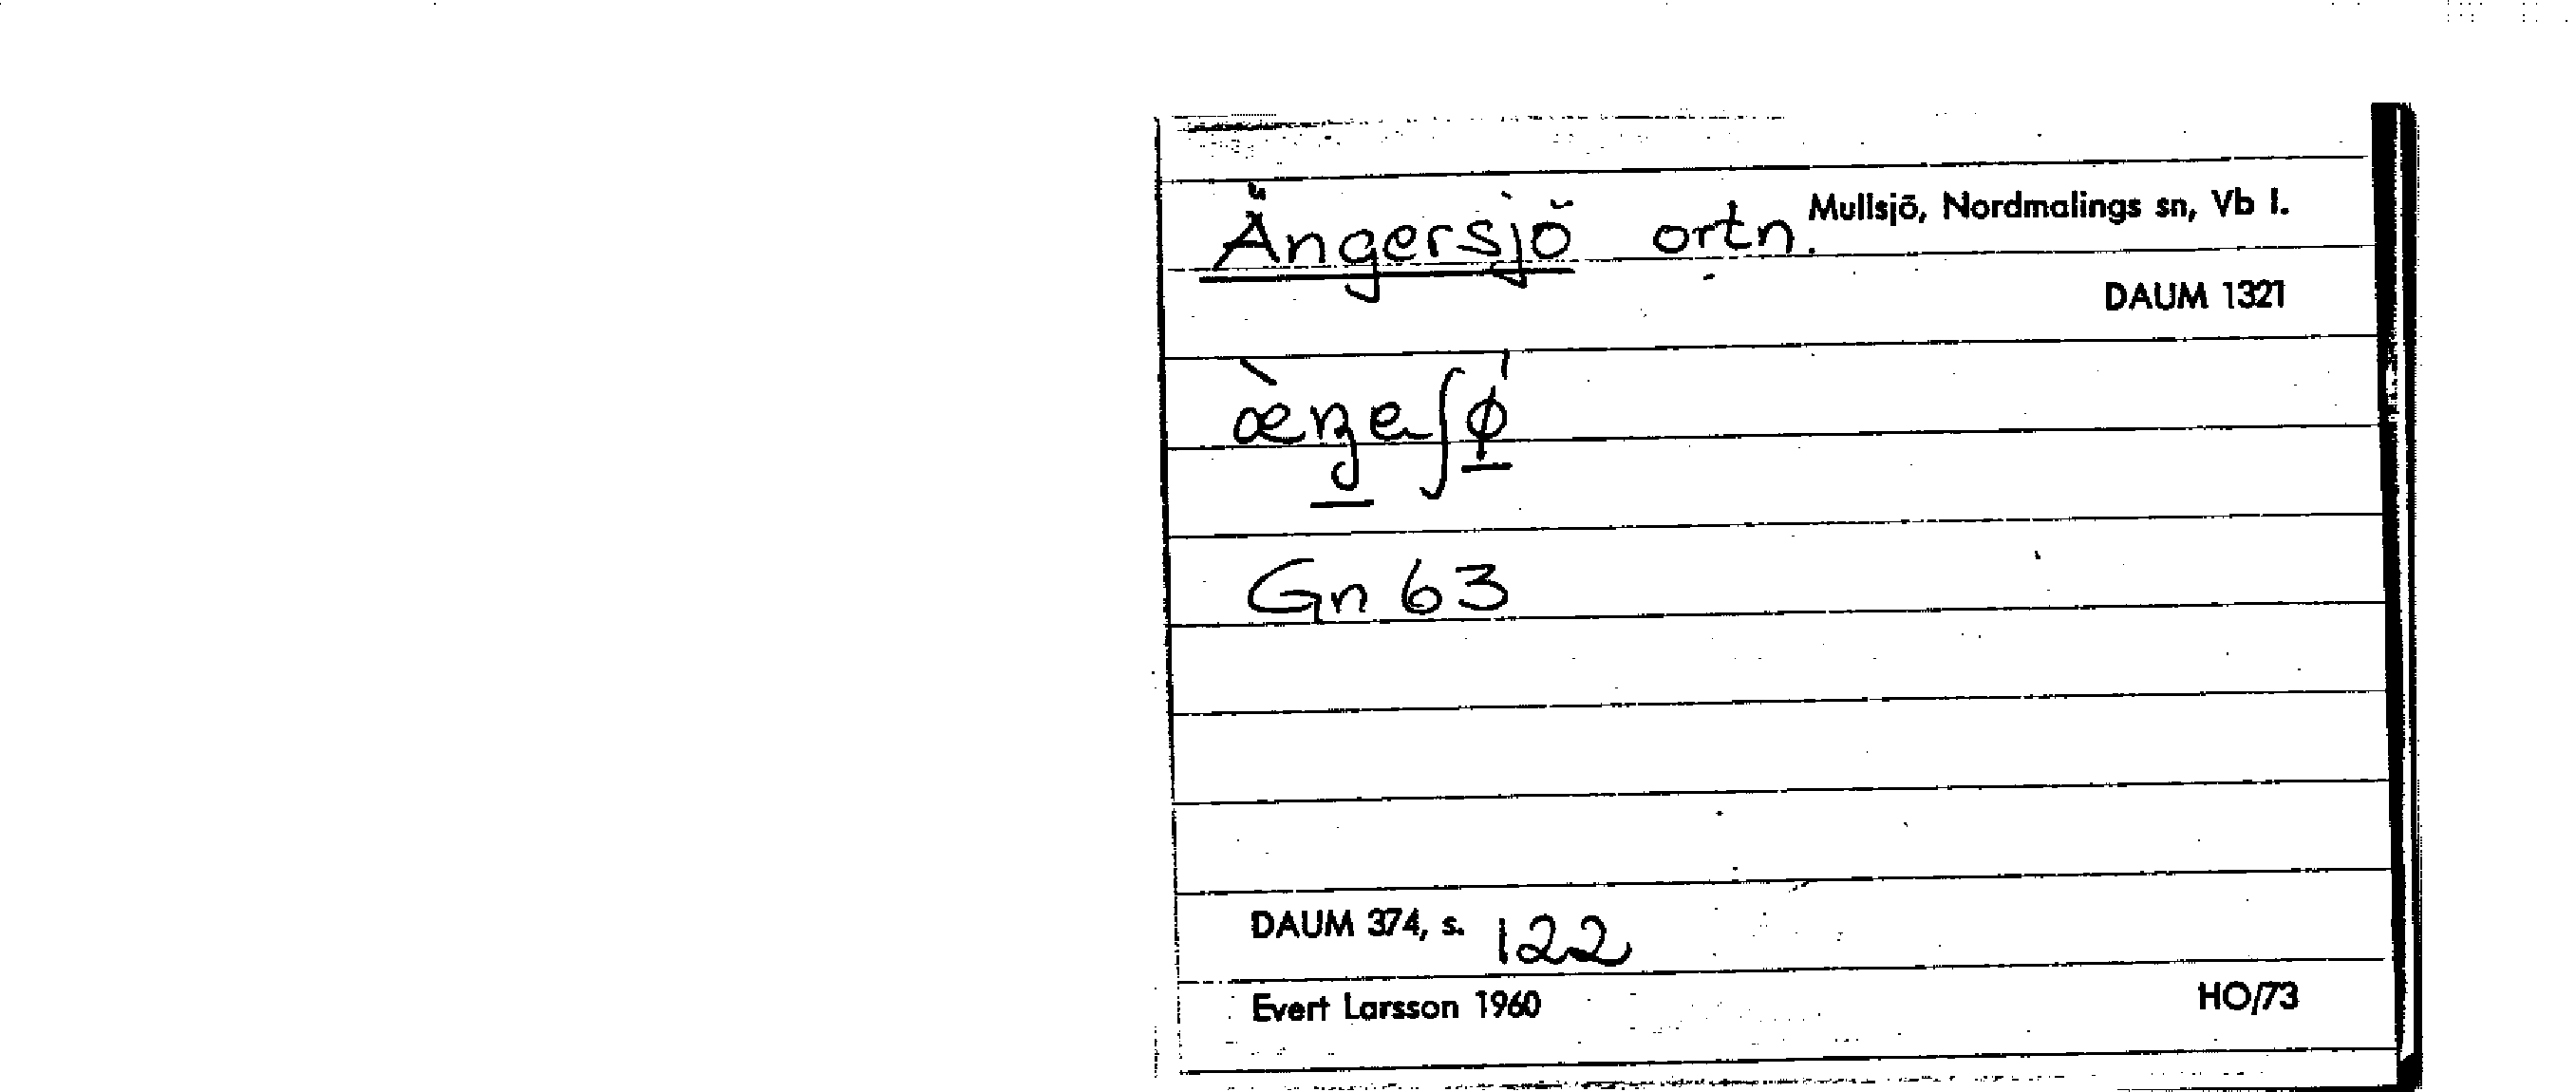 Ängersjö ortn. Mullsjö, Nordmalings sn, Vb l.
DAUM 1321
Gn 63
DAUM 374, s. 122
Evert Larsson 1960 HO/73